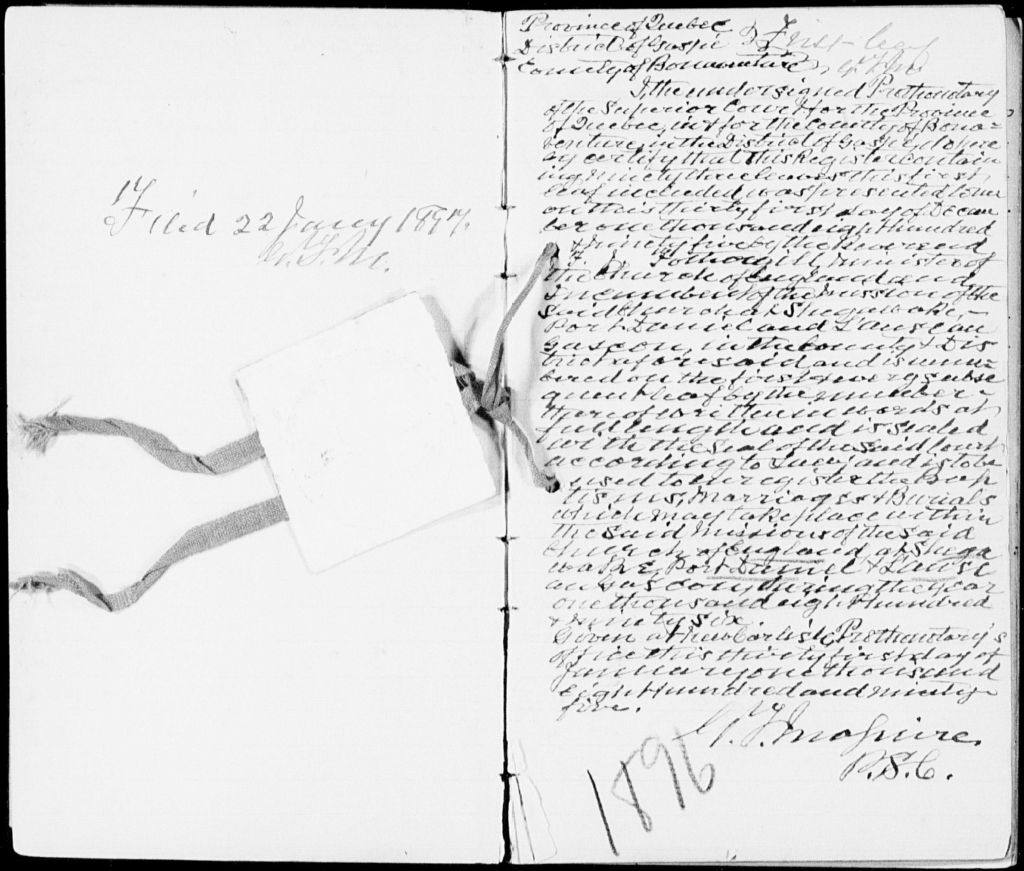 17
Filed 22 Jany 1897.
W.F.M.
Province of Quebec
District of Gaspé } First leaf
County of Bonaventure
I, the undersigned Prothonotary
of the Superior Court for the Province
of Quebec, in & for the County of Bona=
venture, in the District of Gaspé, do here
by certify that this Register contain
ing ninety three leaves this first
leaf included, was presented to me
on this thirty first day of Decem
ber one thousand eight hundred
& ninety five by the Reverend
Fothergill, Minister of
the Church of England and
Incumbent of the Mission of the
said Church at Shegawake,
Port Daniel and L'Anse au
Gascon, in the County & Dis
trict aforesaid and is num=
bered on the first & every subse
quent leaf by the number
thereof written in words at
full length and is sealed
with the seal of the said Court
according to Law, and is to be
used to enregister the Bap
tisms, Marriages & Burials
which may take place within
the said Mission of the said
Church of England at Shega
wake, Port Daniel & L'Anse
au Gascon, during the year
one thousand eight hundred
& ninety six.
Given at New Carlisle, Prothonotary's
office this thirty first day of
January one thousand
eight hundred and ninety
five.
W. F. Maguire
P.S.C.
1896